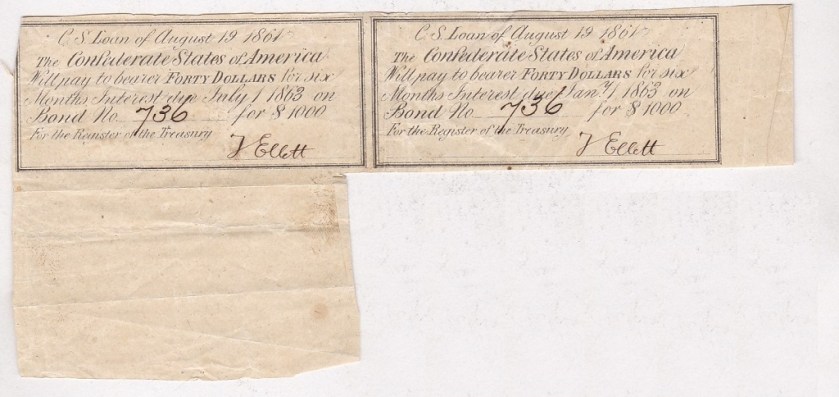 C. S. Loan of August 19 1861
The Confederate States of America
Will pay to bearer FORTY DOLLARS for six
Months Interest due July 1 1863 on
Bond No 736 for $1000
For the Register of the Treasury
J Ellett
C. S. Loan of August 19 1861
The Confederate States of America
Will pay to bearer FORTY DOLLARS for six
Months Interest due Jany. 1 1863 on
Bond No 736 for $1000
For the Register of the Treasury
J Ellett